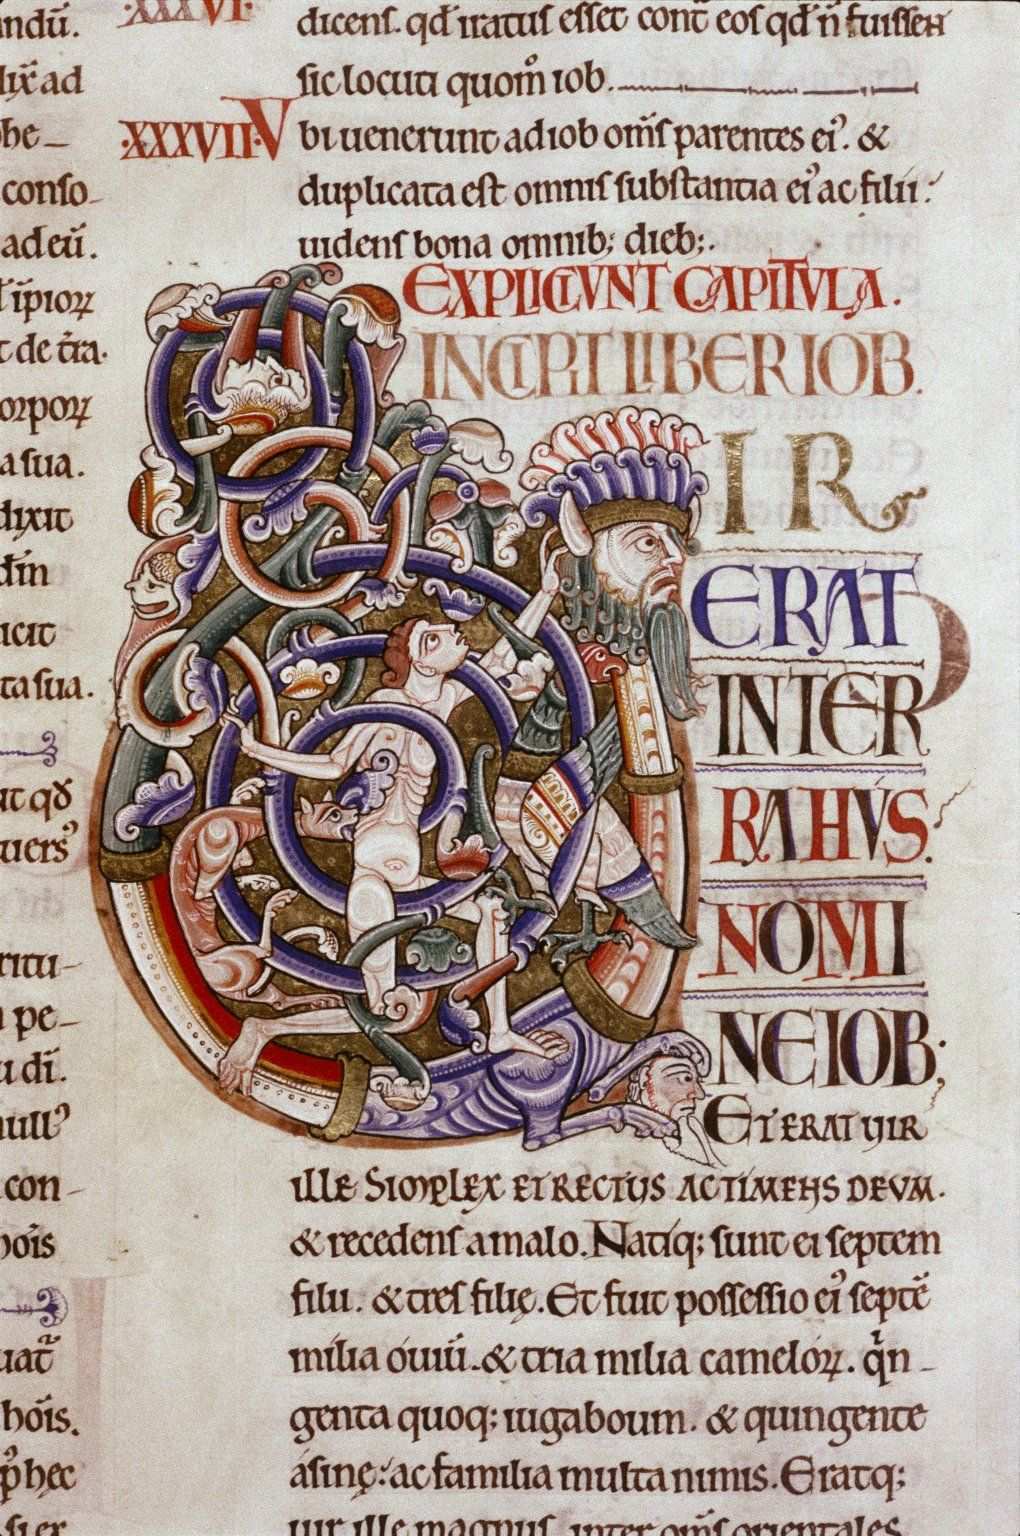 andū.
lix̄ ad
phe
conso
ad eū.
īpiorꝝ
t de t̄ra.
orporꝝ
a sua.
dixit
dīn
icit
ta sua.
ut qđ
uersꝰ
ritu
a pe
u dī.
null ꝰ
con
hoīs
uat̄
hoīs.
ꝓhec
si ex
.XXXVI.
dicens. qđ iratus esset cont̄ eos qđ n̄ fuissen
sic locuti quom̊ iob.
.XXXVII. Vbi uenerunt ad iob om̄s parentes eiꝰ. &
duplicata est omnis substantia eiꝰ ac filii:
uidens bona omnib; dieb;.
EXPLICIUNT CAPITULA.
INCIPIT LIBER IOB.
VIR
ERAT
IN TER
RA HUS.
NOMI
NE IOB;
ET ERAT VIR
ILLE SIMPLEX ET RECTUS AC TIMENS DEUM.
& recedens a malo. Natiq; sunt ei septem
filii. & tres filię. Et fuit possessio eiꝰ septē
milia ouiū. & tria milia camelorꝝ. qin
genta quoq; iuga boum. & quingente
asinę: ac familia multa nimis. Eratq;
uir ille magnus inter om̄s orientales